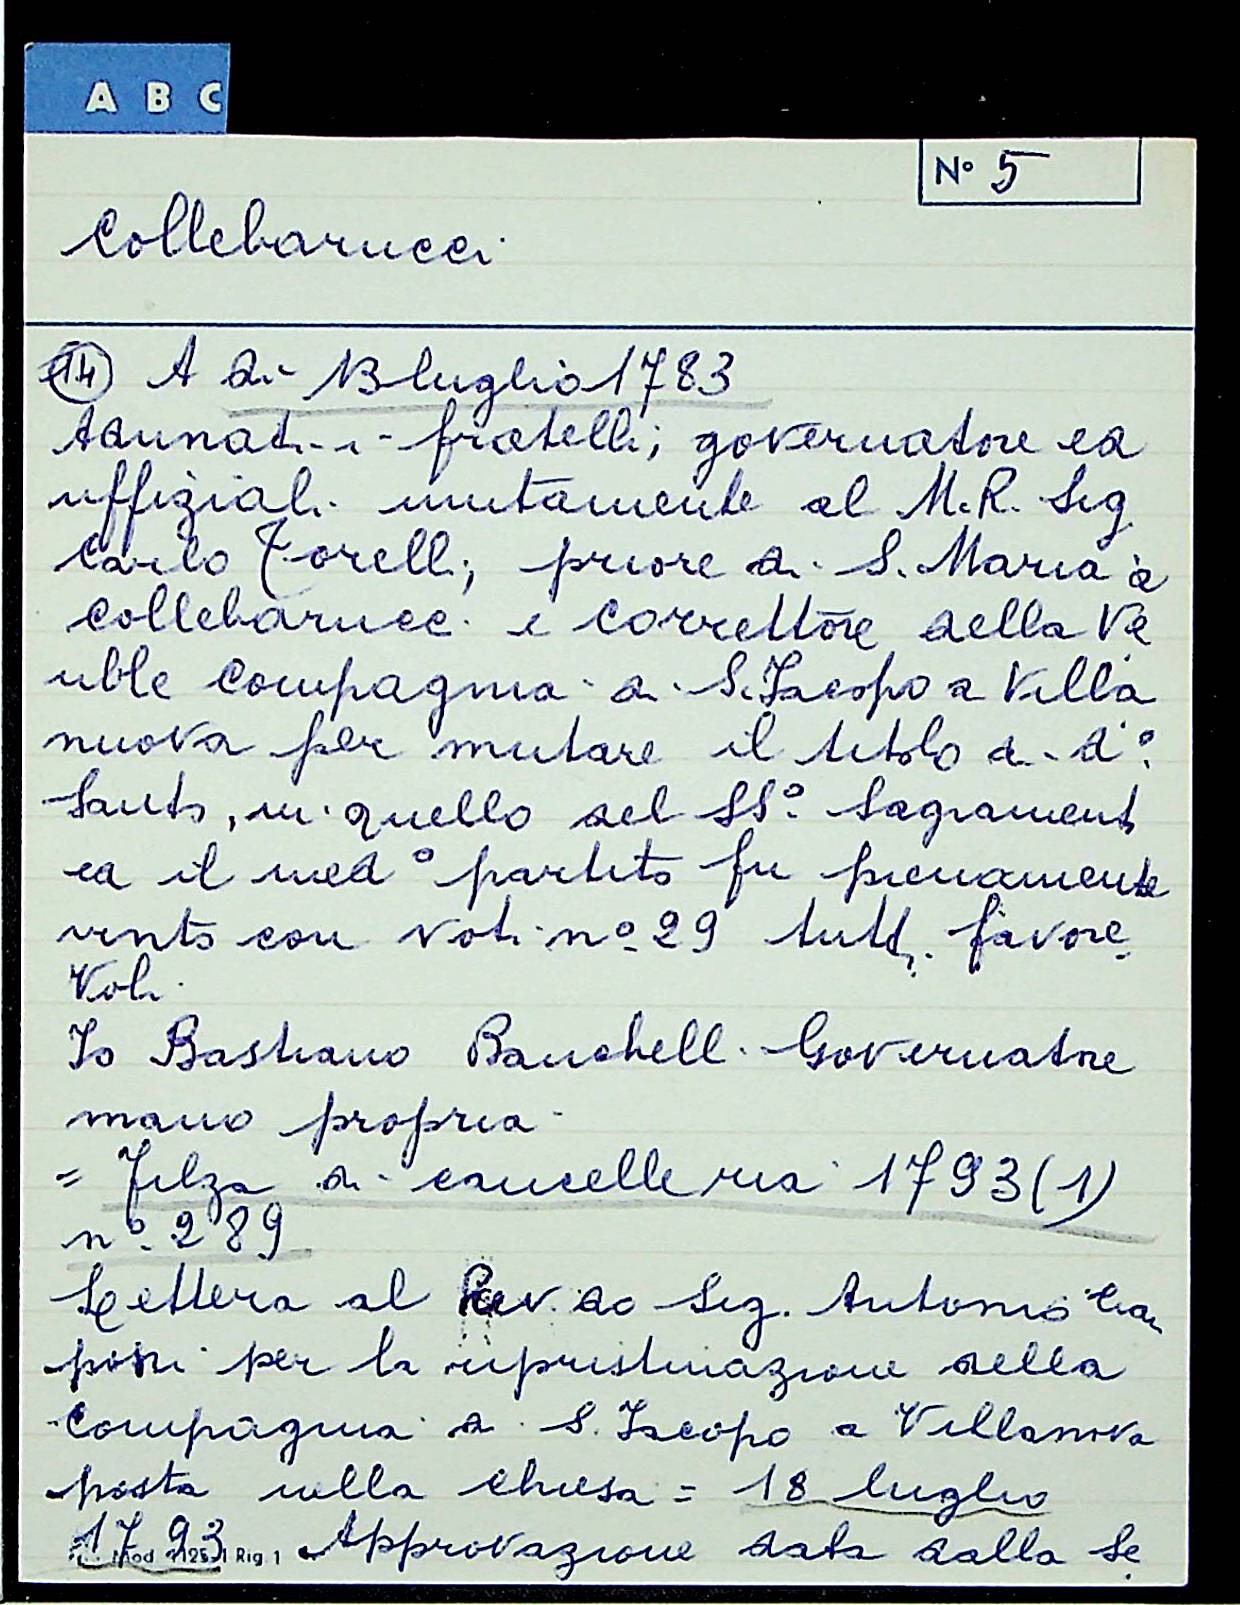 A B C
N° 5
Collebarucci
(14) A di 13 luglio 1783
Adunati i fratelli, governatore ed
uffiziali unitamente al M.R. Sig
Carlo Torelli, priore di S. Maria a
Collebarucci e Correttore della Ve
nble Compagnia di S. Jacopo a Villa
nuova per mutare il titolo di d°:
Santo, in quello del SS°: Sagramento
ed il med° partito fu pienamente
vinto con voti n° 29 tutti favore
voli.
Io Bastiano Banchelli Governatore
mano propria
= Filza di cancelleria 1793 (1)
n° 289
Lettera al Rev.do Sig. Antonio
per la ripristinazione della
Compagnia di S. Jacopo a Villanova
posta nella chiesa = 18 luglio
1793 Mod Rig. 1 Approvazione data dalla Se